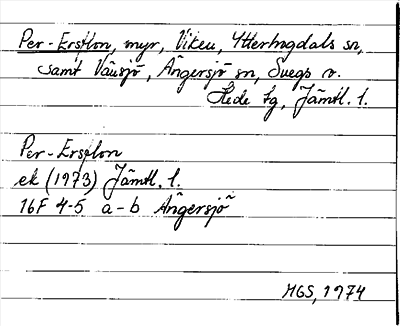 Per-Ersflon, myr, Viken, Ytterhogdals sn,
samt Väusjö, Ängersjö sn, Svegs o.
Hede tg, Jämtl. l.
Per-Ersflon
ek (1973) Jämtl. l.
16F 4-5 a-b Ängersjö
MGS, 1974